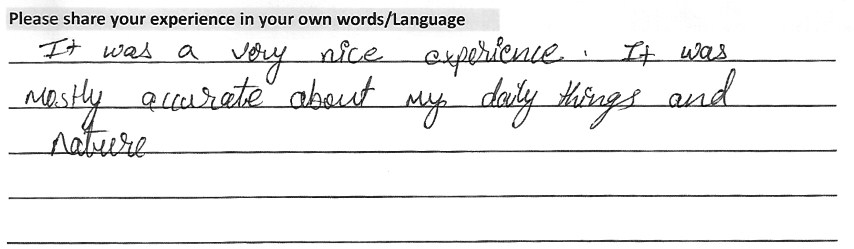 Please share your experience in your own words/Language
It was a very nice experience. It was
mostly accurate about my daily things and
nature